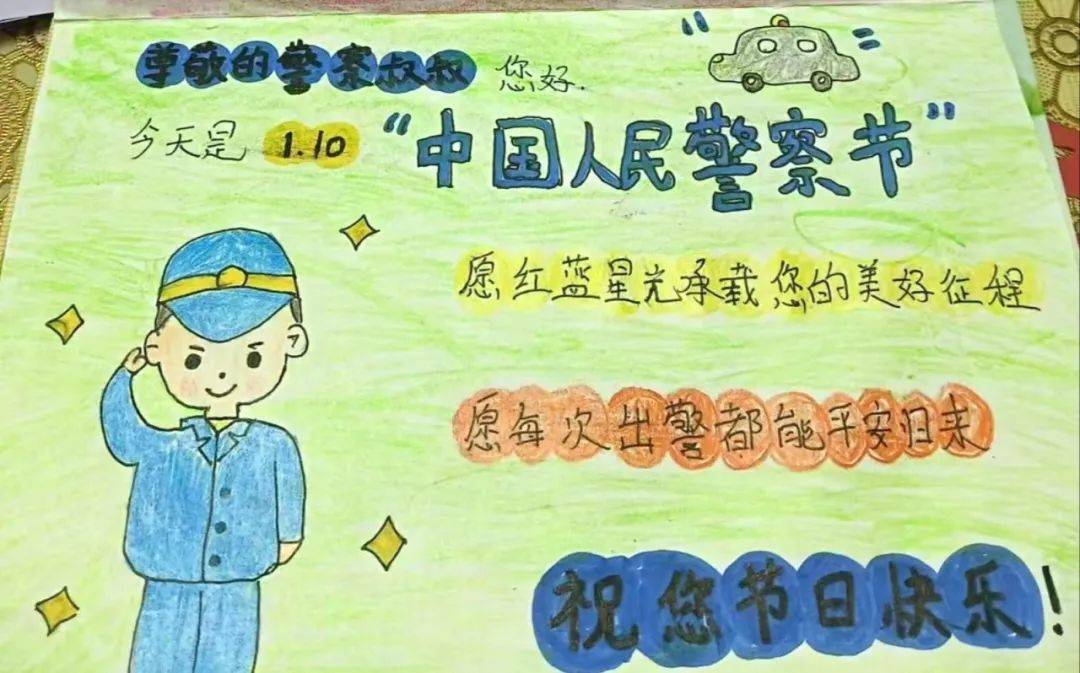 尊敬的警察叔叔 您好.
今天是 1.10 “中国人民警察节”
愿红蓝星光承载您的美好征程
愿每次出警都能平安归来
祝您节日快乐!